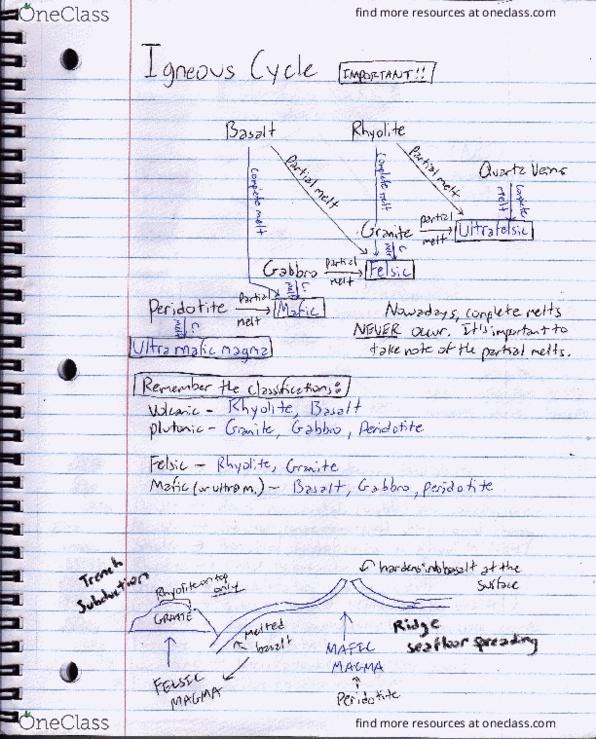 OneClass
find more resources at oneclass.com
Igneous Cycle IMPORTANT!!
Basalt
Rhyolite
Partial melt
Partial melt
Quartz Veins
Complete melt
Complete melt
Complete melt
Granite
partial melt
Ultrafelsic
C. melt
Gabbro
partial melt
Felsic
C. melt
Peridotite
Partial melt
Mafic
C. melt
Ultramafic magma
Nowadays, complete melts
NEVER occur. It's important to
take note of the partial melts.
Remember the classifications:
Volcanic - Rhyolite, Basalt
plutonic - Granite, Gabbro, Peridotite
Felsic - Rhyolite, Granite
Mafic (or ultram.) - Basalt, Gabbro, peridotite
Trench
Subduction
Rhyolite on top
only
hardens into basalt at the
surface
melted
basalt
Ridge
seafloor spreading
FELSIC
MAGMA
MAFIC
MAGMA
Peridotite
OneClass
find more resources at oneclass.com